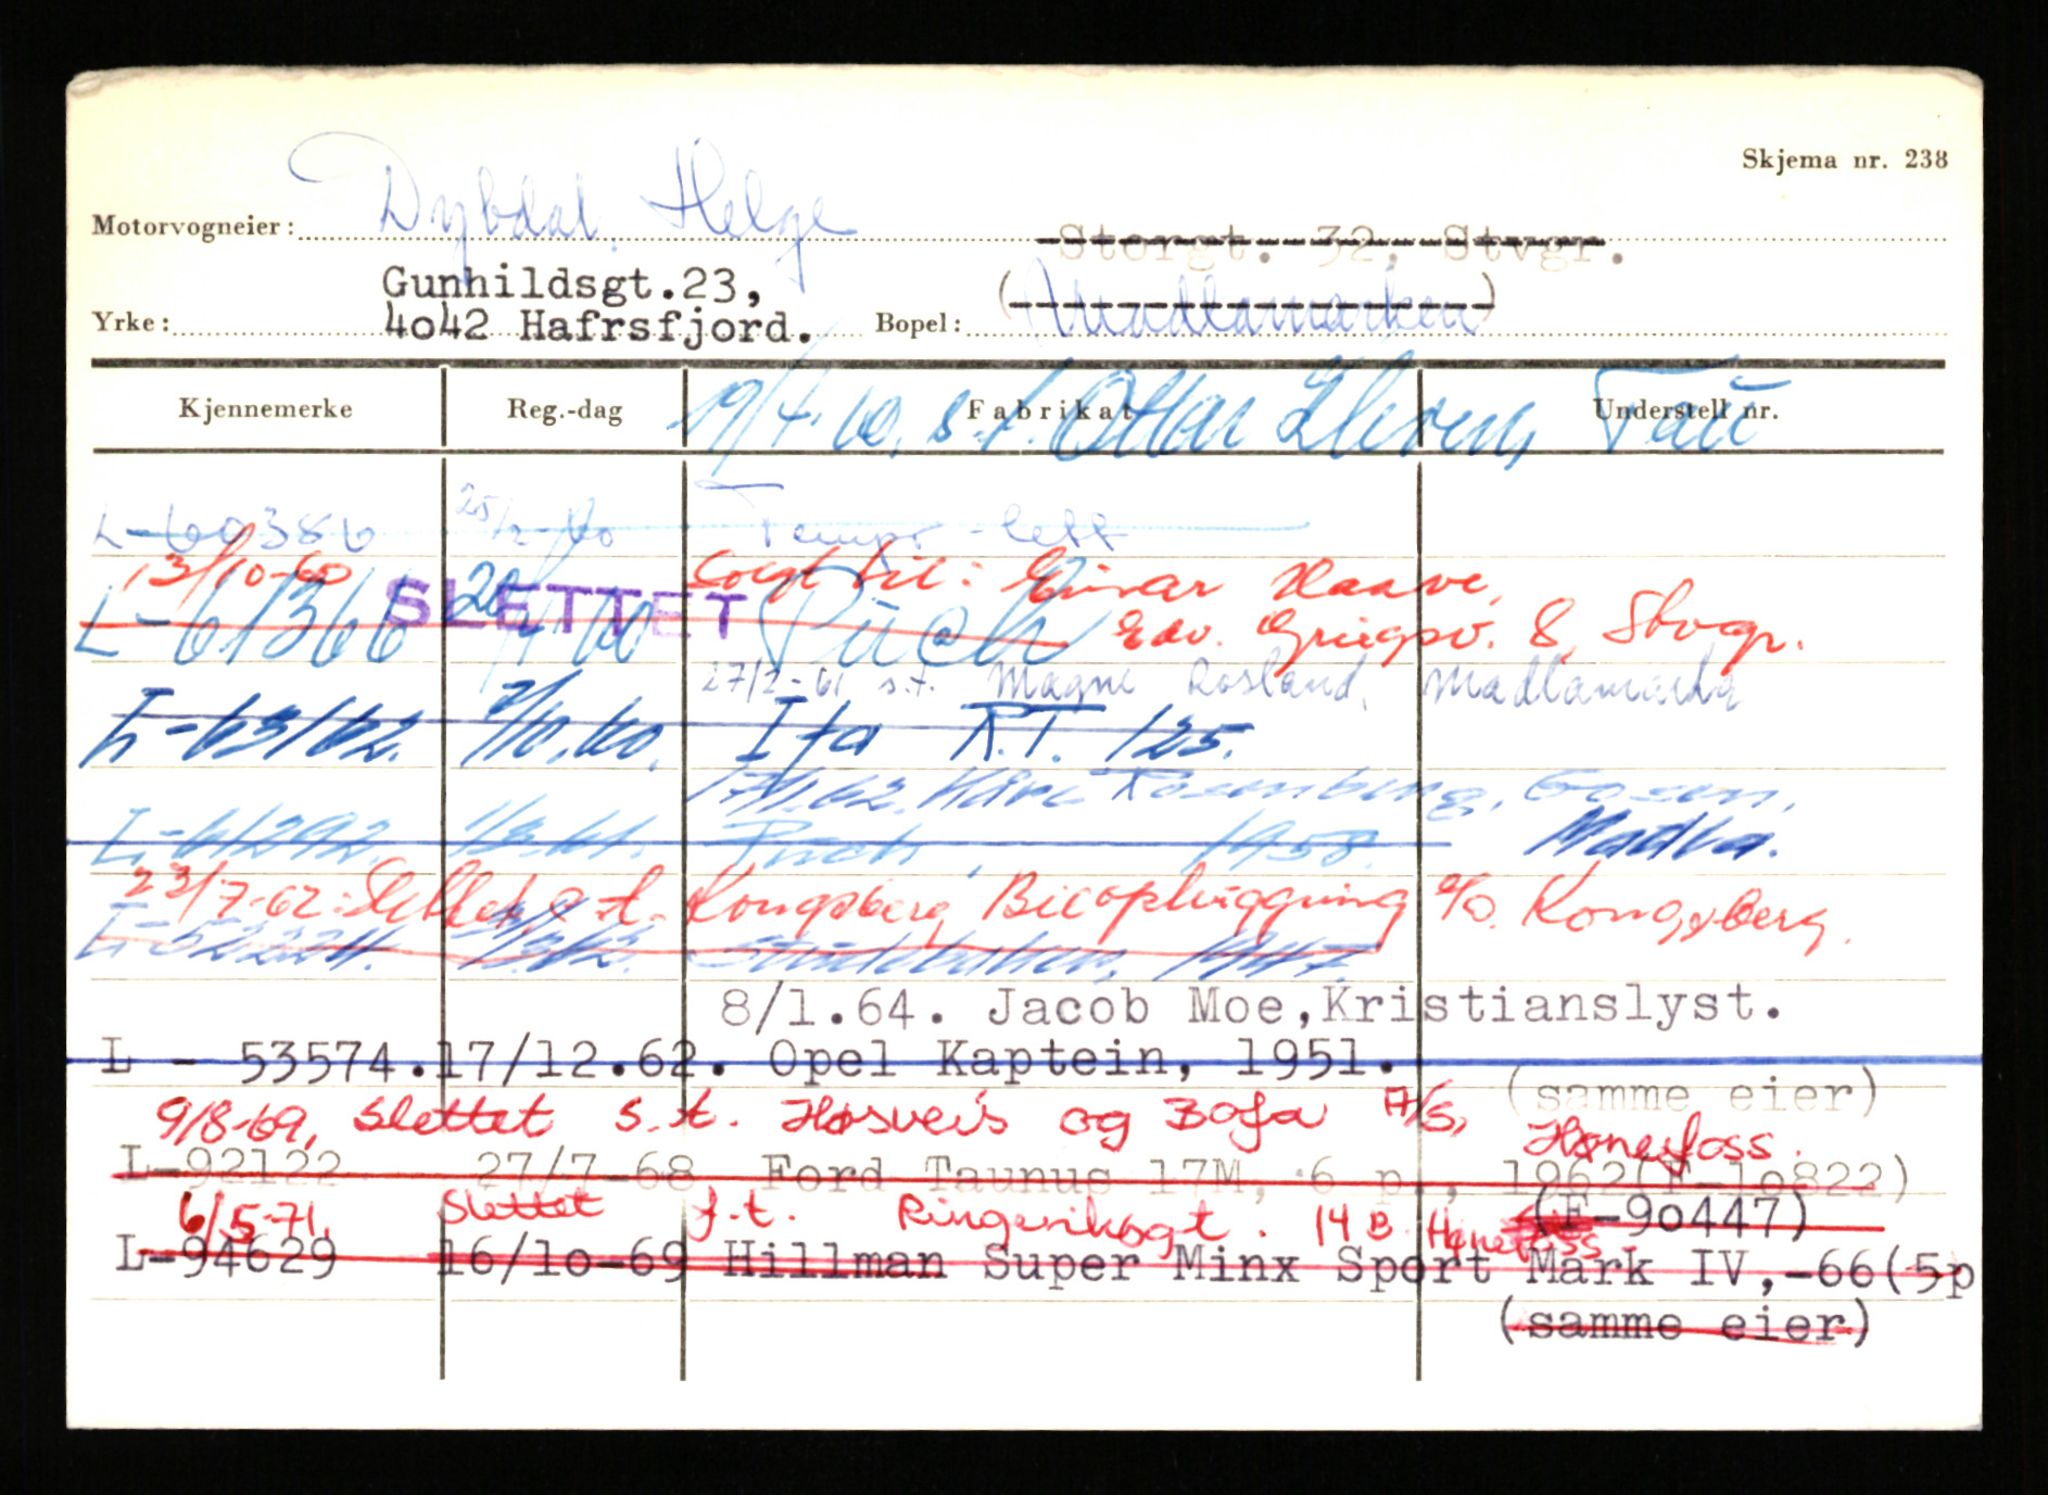 Skjema nr. 238
Motorvogneier: Dybdal, Helge
Storgt. 32, Stvgr.
Gunhildsgt.23,
(Madlamarken)
Yrke: 4o42 Hafrsfjord. Bopel:
19/4.60, s.t. Ottar Tau
Kjennemerke Reg.-dag Fabrikat Understell nr.
L-60386 25/2-60 Tempo - lett
13/10-60 Solgt til: Einar Haave,
SLETTET
L-61366 20/4 60 Puch Edv. Griegsv. 8, Stvgr.
27/2-61 s.t. Magne Rosland, Madlamarka
L-63162. 7/10.60. Ifa R.T. 125.
17/1.62. Kåre Rosenberg, Gosen,
L-61292. 1/3.61. Puch, 1958. Madla.
23/7-62: Slettet s.t. Kongsberg Bilopphugging %o. Kongsberg.
L-52224. Studebaker, 1947.
8/1.64. Jacob Moe,Kristianslyst.
L - 53574. 17/12.62. Opel Kaptein, 1951.
(samme eier)
9/8-69, slettet s.t. Høsveis og Bofa A/S, Hønefoss.
L-92122 27/7-68 Ford Taunus 17M, 6 p., 1962(F-1o822)
6/5-71. Slettet f.t. Ringeriksgt. 14 B Hønefoss
(F-9o447)
L-94629 16/1o-69 Hillman Super Minx Sport Mark IV,-66(5p
(samme eier)